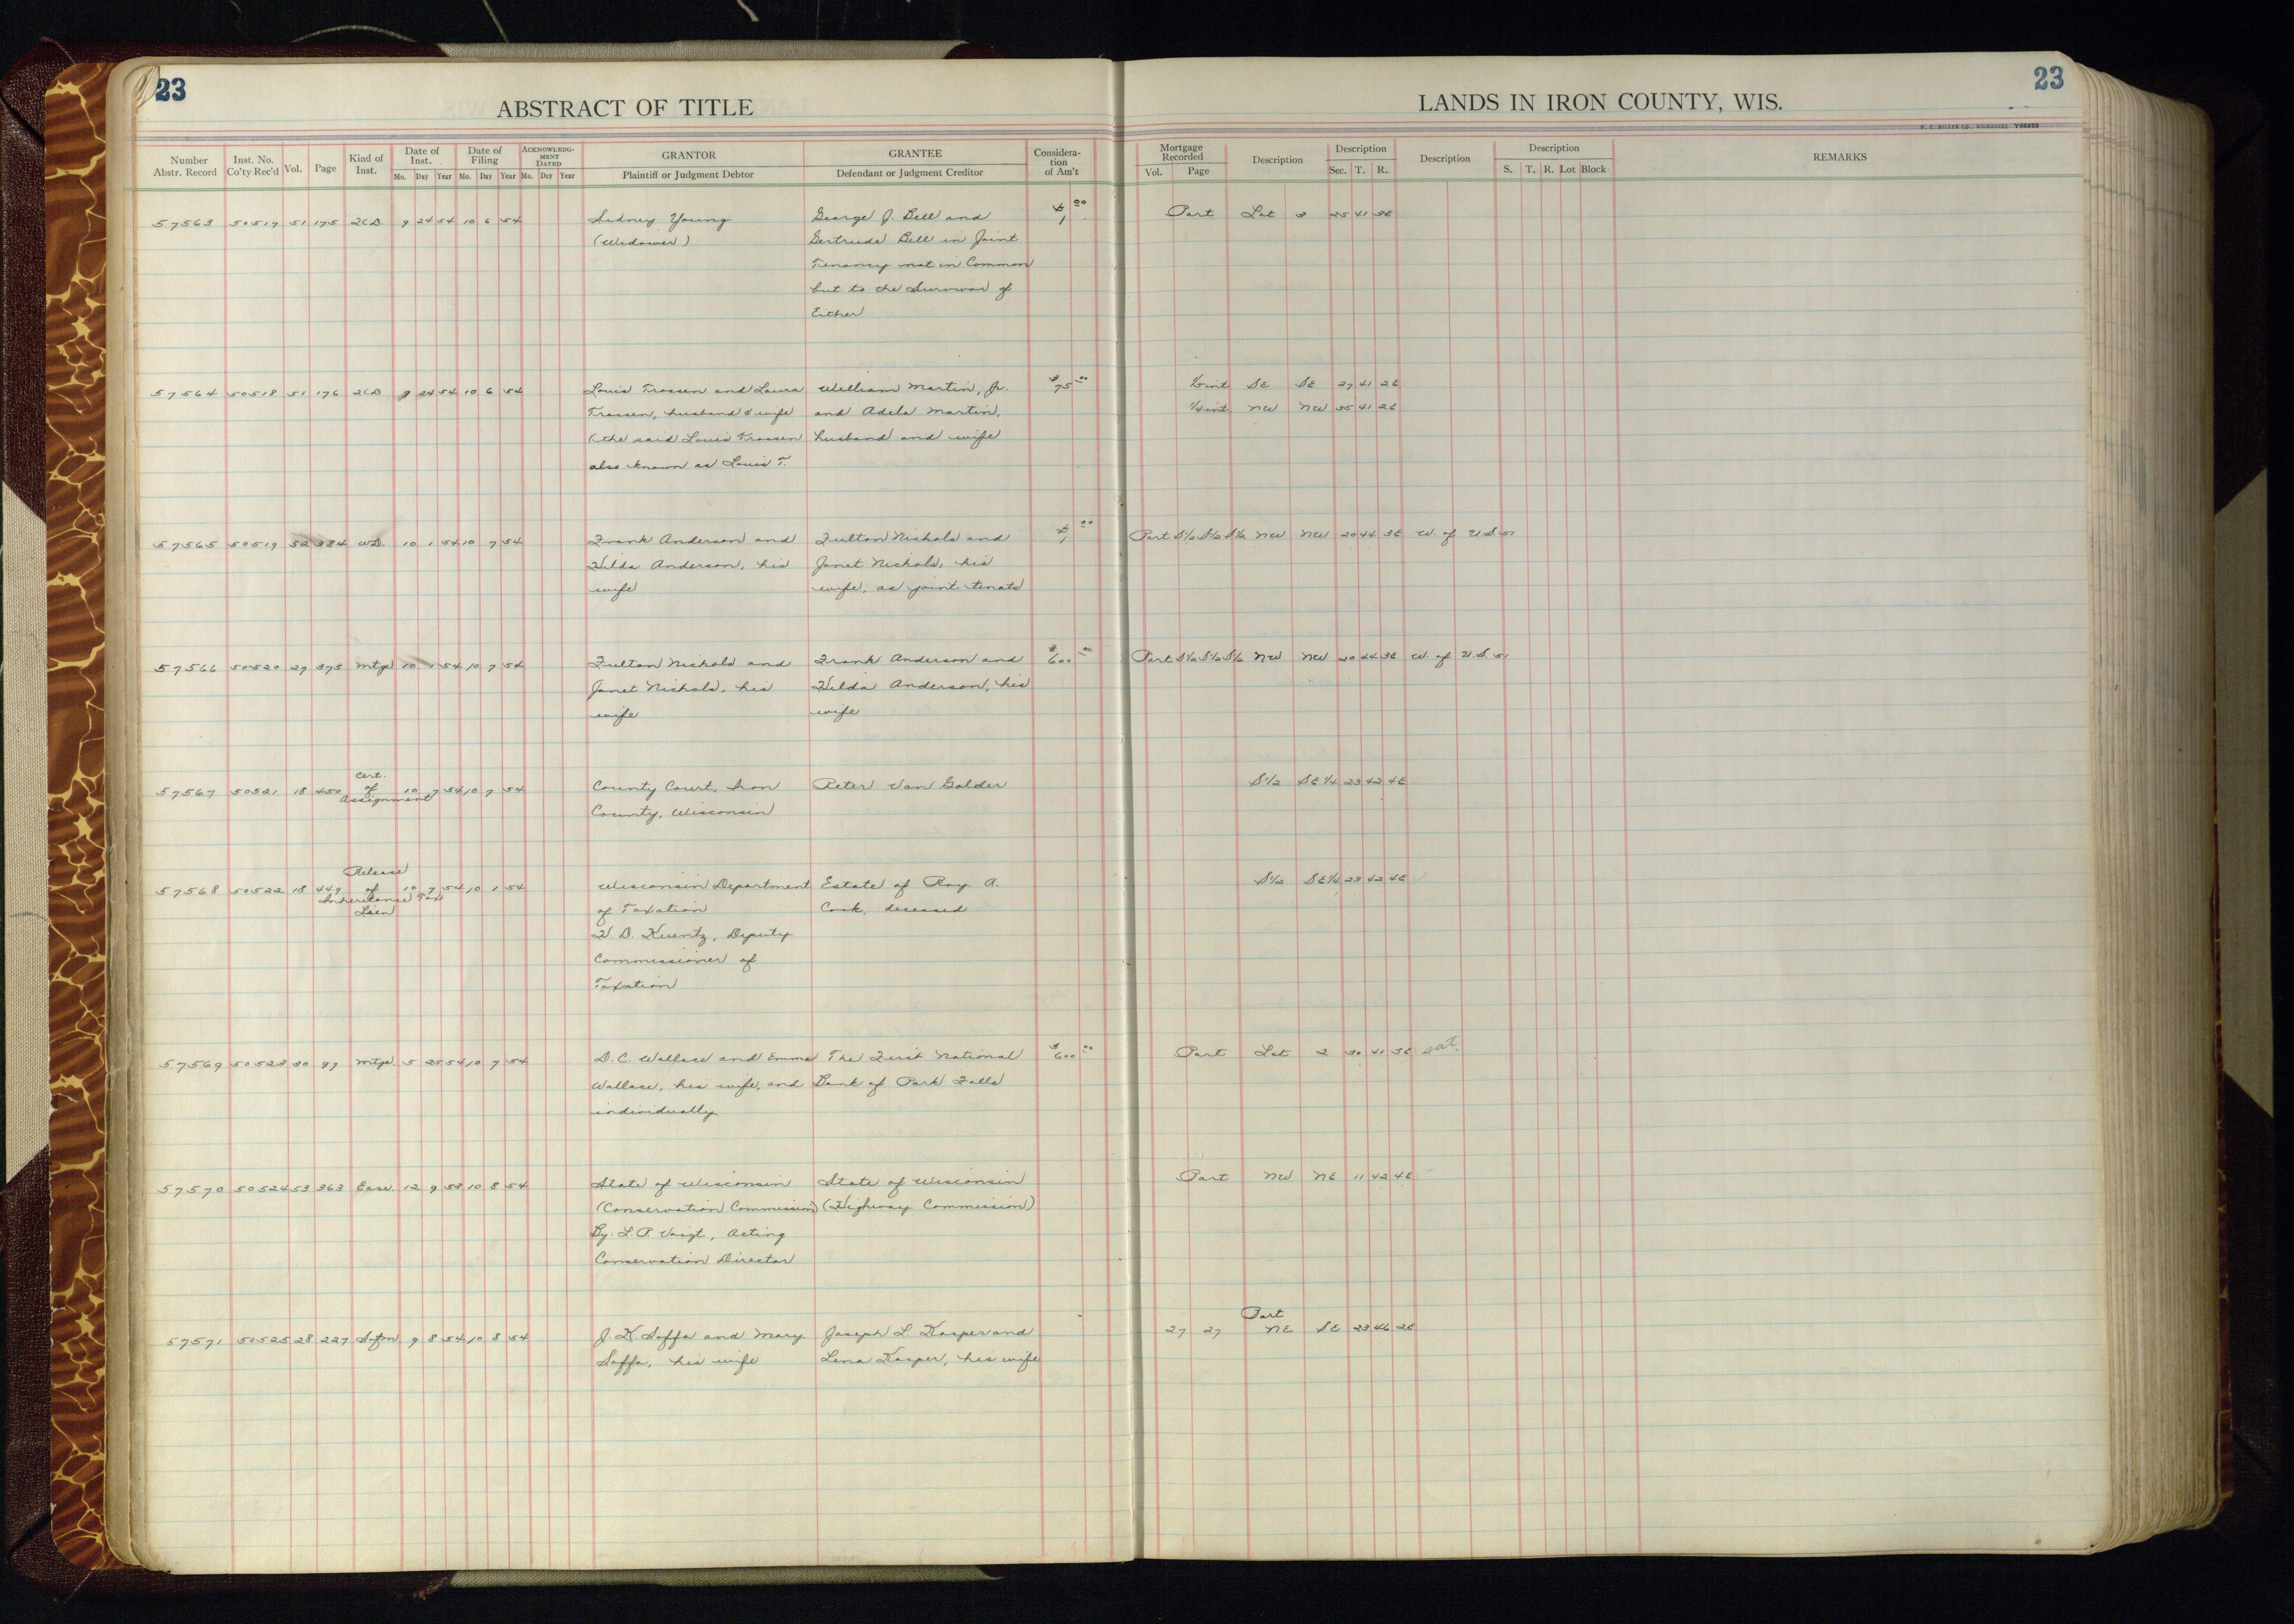 23
23
ABSTRACT OF TITLE
LANDS IN IRON COUNTY, WIS.
H. C. MILLER CO., MILWAUKEE Y66855
Number Abstr. Record
Inst. No. Co'ty Rec'd
Vol.
Page
Kind of Inst.
Date of Inst.
Mo. Day Year
Date of Filing
Mo. Day Year
ACKNOWLEDG-MENT DATED
Mo. Day Year
GRANTOR
Plaintiff or Judgment Debtor
GRANTEE
Defendant or Judgment Creditor
Considera-tion of Am't
Mortgage Recorded
Vol. Page
Description
Description
Sec. T. R.
Description
Description
S. T. R. Lot Block
REMARKS
57563 50517 51 175 2CD. 9 24 54 10 6 54 Sidney Young George J. Bell and $1 00 Part Lot 3 25 41 3E
(Widower) Gertrude Bell in Joint
Tenancy not in Common
but to the Survivor of
Either
57564 50518 51 176 2CD 9 24 54 10 6 54 Louis Trossen and Laura William Martin, Jr. $75 00 SE SE 27 41 2E
Trossen, husband & wife and Adela Martin, 1/4 int NW NW 35 41 2E
(the said Louis Trossen husband and wife
also known as Louis T.
57565 50519 52 334 WD. 10 1 54 10 7 54 Frank Anderson and Fulton Nichols and $1 00 Part S½ S½ S½ NW NW 20 44 3E W. of U.S. 51
Hilda Anderson, his Janet Nichols, his
wife wife, as joint tenats
57566 50520 27 375 Mtge 10 1 54 10 7 54 Fulton Nichols and Frank Anderson and $600 00 Part S½ S½ S½ NW NW 20 44 3E W. of U.S. 51
Janet Nichols, his Hilda Anderson, his
wife wife
Cert.
57567 50521 18 450 of 10 7 54 10 7 54 County Court, Iron Peter Van Galder S1/2 SE1/4 23 42 4E
Assignment
County, Wisconsin
Release
57568 50522 18 449 of 10 7 54 10 1 54 Wisconsin Department Estate of Roy A. S1/2 SE1/4 23 42 4E
Inheritance Tax
Lien of Taxation Cook, deceased
H. D. Kuentz, Deputy
Commissioner of
Taxation
57569 50523 30 97 Mtge. 5 25 54 10 7 54 D. C. Wallace and Emma The First National $600 00 Part Lot 2 30 41 3E sat.
Wallace, his wife, and Bank of Park Falls
individually
57570 50524 53 363 Ease. 12 9 53 10 8 54 State of Wisconsin State of Wisconsin Part NW NE 11 42 4E
(Conservation Commission) (Highway Commission)
By. L. P. Voigt, Acting
Conservation Director
Part
57571 50525 28 227 Satfn 9 8 54 10 8 54 J. K. Soffa and Mary Joseph L. Kasper and 27 27 NE SE 23 46 2E
Soffa, his wife Lena Kasper, his wife